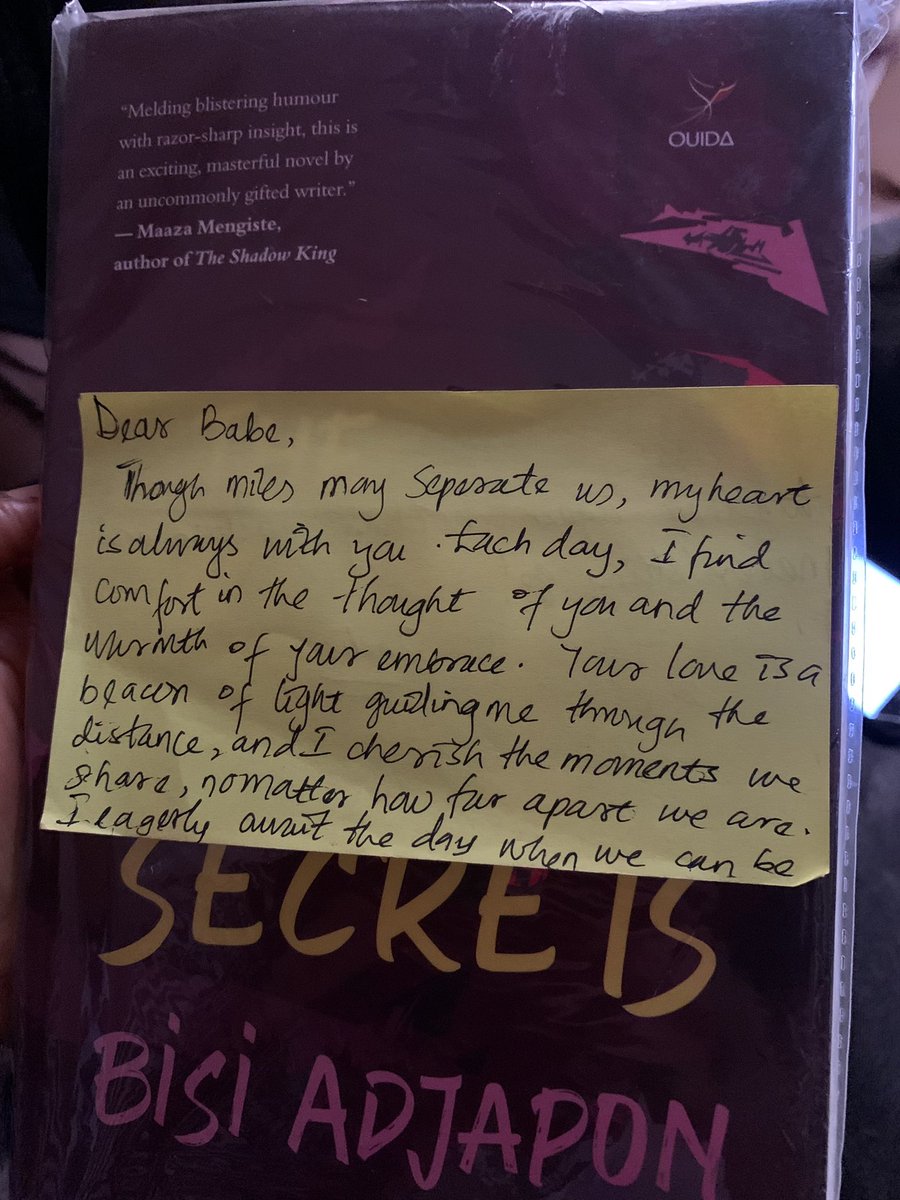 “Melding blistering humour
with razor-sharp insight, this is
an exciting, masterful novel by
an uncommonly gifted writer.”
— Maaza Mengiste,
author of The Shadow King
OUIDA
Dear Babe,
Though miles may Seperate us, my heart
is always with you. Each day, I find
comfort in the thought of you and the
warmth of your embrace. Your love is a
beacon of light guiding me through the
distance, and I cherish the moments we
share, no matter how far apart we are.
I eagerly await the day when we can be
SECRETS
BISI ADJAPON